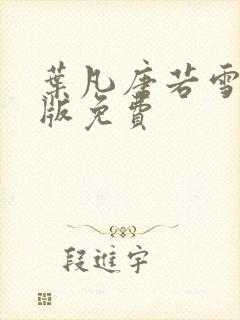 葉凡唐若雪
版免費
段進宇